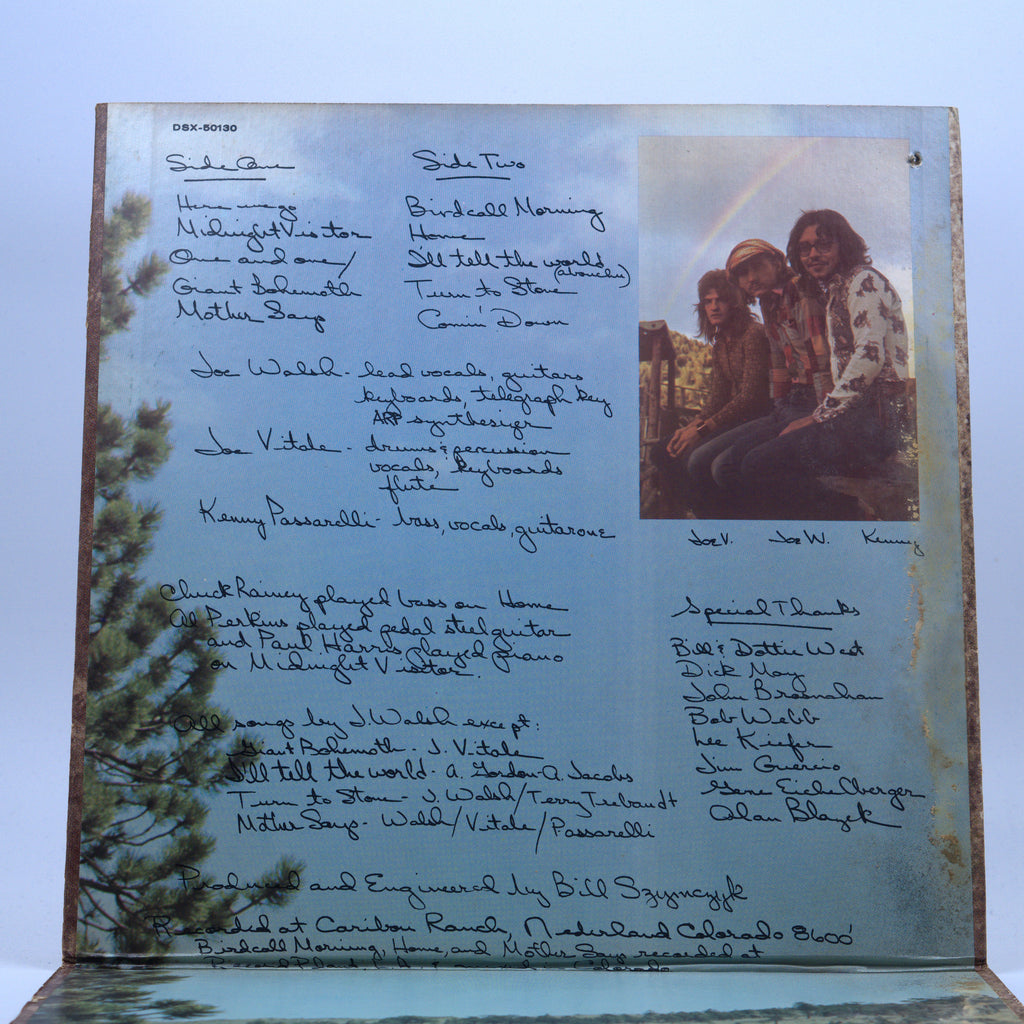 DSX-50130
Side One
Here we go
Midnight Visitor
One and one/
Giant Bohemoth
Mother Says
Side Two
Birdcall Morning
Home
I'll tell the world
(about you)
Turn to Stone
Comin' Down
Joe Walsh - lead vocals, guitars
keyboards, telegraph key
ARP synthesizer
Joe Vitale - drums & percussion
vocals, keyboards
flute
Kenny Passarelli - bass, vocals, guitarone
Joe V. Joe W. Kenny
Chuck Rainey played bass on Home
Al Perkins played pedal steel guitar
and Paul Harris played piano
on Midnight Visitor.
All songs by J. Walsh except:
Giant Bohemoth - J. Vitale
I'll tell the world - A. Gordon-A. Jacobs
Turn to Stone - J. Walsh/Terry Trebandt
Mother Says - Walsh/Vitale/Passarelli
Special Thanks
Bill & Dottie West
Dick May
John Brosnahan
Bob Webb
Lee Kiefer
Jim Guercio
Gene Eichelberger
Alan Blazek
Produced and Engineered by Bill Szymczyk
Recorded at Caribou Ranch, Nederland Colorado 8600'
Birdcall Morning, Home, and Mother Says recorded at
Record Plant, L.A. Colorado